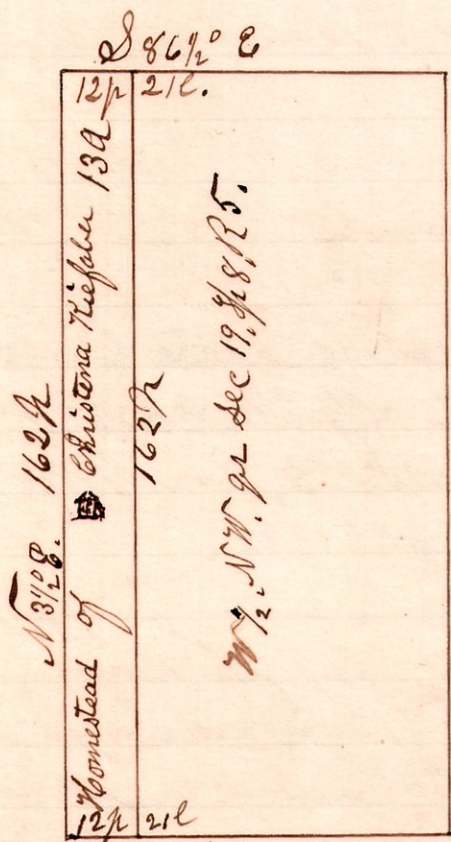 S 86½° E
12p 21l.
N 3½° E. 162p
Homestead of Christena Kiefaber 13A
162p
W ½. N W. qr Sec 19. Tp 8. R 5.
12p 21l